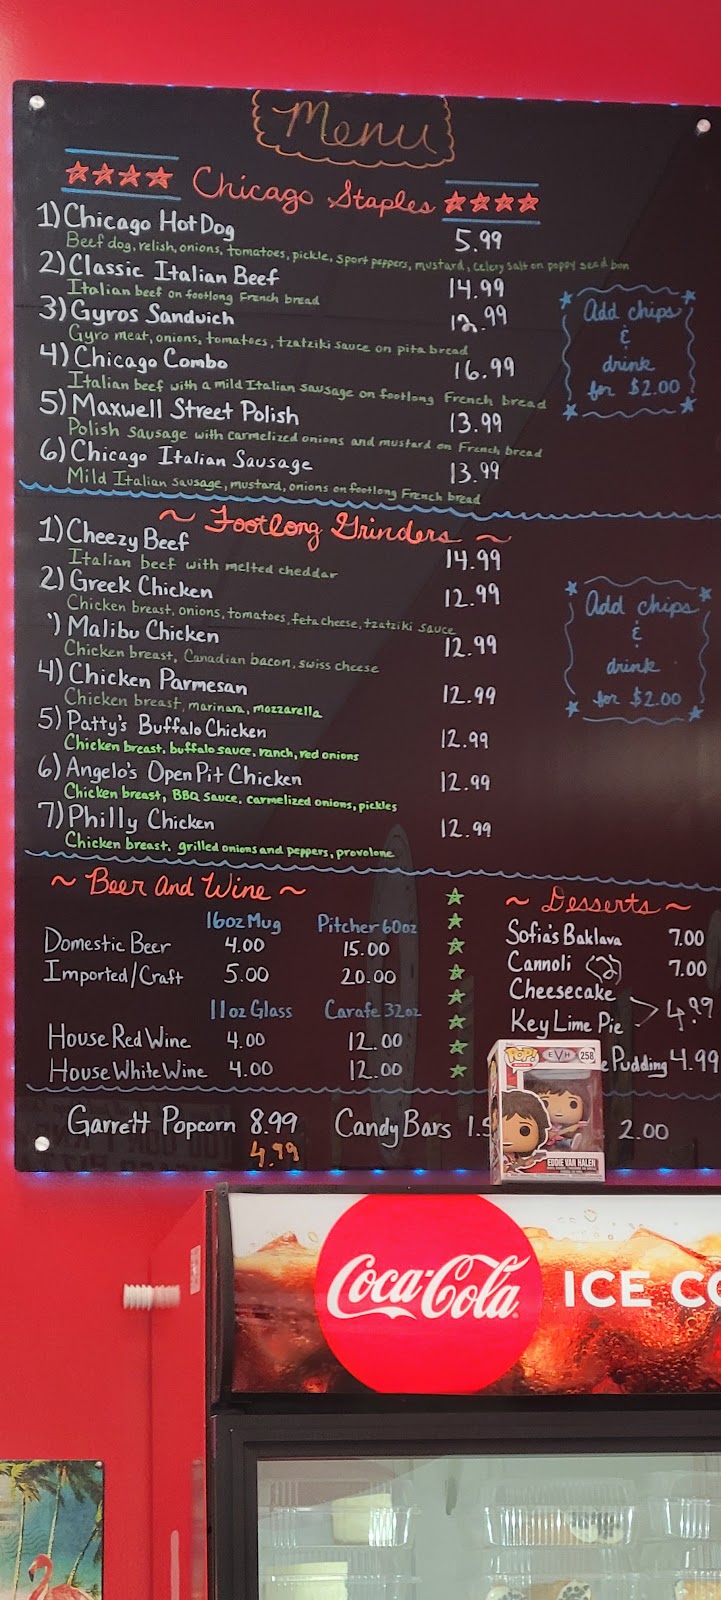 Menu
Chicago Staples
1) Chicago Hot Dog 5.99
Beef dog, relish, onions, tomatoes, pickle, sport peppers, mustard, celery salt on poppy seed bun
2) Classic Italian Beef 14.99
Italian beef on footlong French bread
3) Gyros Sandwich 12.99
Gyro meat, onions, tomatoes, tzatziki sauce on pita bread
4) Chicago Combo 16.99
Italian beef with a mild Italian sausage on footlong French bread
5) Maxwell Street Polish 13.99
Polish sausage with carmelized onions and mustard on French bread
6) Chicago Italian Sausage 13.99
Mild Italian sausage, mustard, onions on footlong French bread
Add chips
&
drink
for $2.00
~ Footlong Grinders ~
1) Cheezy Beef 14.99
Italian beef with melted cheddar
2) Greek Chicken 12.99
Chicken breast, onions, tomatoes, feta cheese, tzatziki sauce
) Malibu Chicken 12.99
Chicken breast, Canadian bacon, swiss cheese
4) Chicken Parmesan 12.99
Chicken breast, marinara, mozzarella
5) Patty's Buffalo Chicken 12.99
Chicken breast, buffalo sauce, ranch, red onions
6) Angelo's Open Pit Chicken 12.99
Chicken breast, BBQ sauce, carmelized onions, pickles
7) Philly Chicken 12.99
Chicken breast, grilled onions and peppers, provolone
Add chips
&
drink
for $2.00
~ Beer And Wine ~
16oz Mug Pitcher 60oz
Domestic Beer 4.00 15.00
Imported/Craft 5.00 20.00
11oz Glass Carafe 32oz
House Red Wine 4.00 12.00
House White Wine 4.00 12.00
~ Desserts ~
Sofia's Baklava 7.00
Cannoli (2) 7.00
Cheesecake
Key Lime Pie 4.99
e Pudding 4.99
Garrett Popcorn 8.99
4.99
Candy Bars 1.5
2.00
POP!
EVH
258
EDDIE VAN HALEN
Coca-Cola
ICE CO